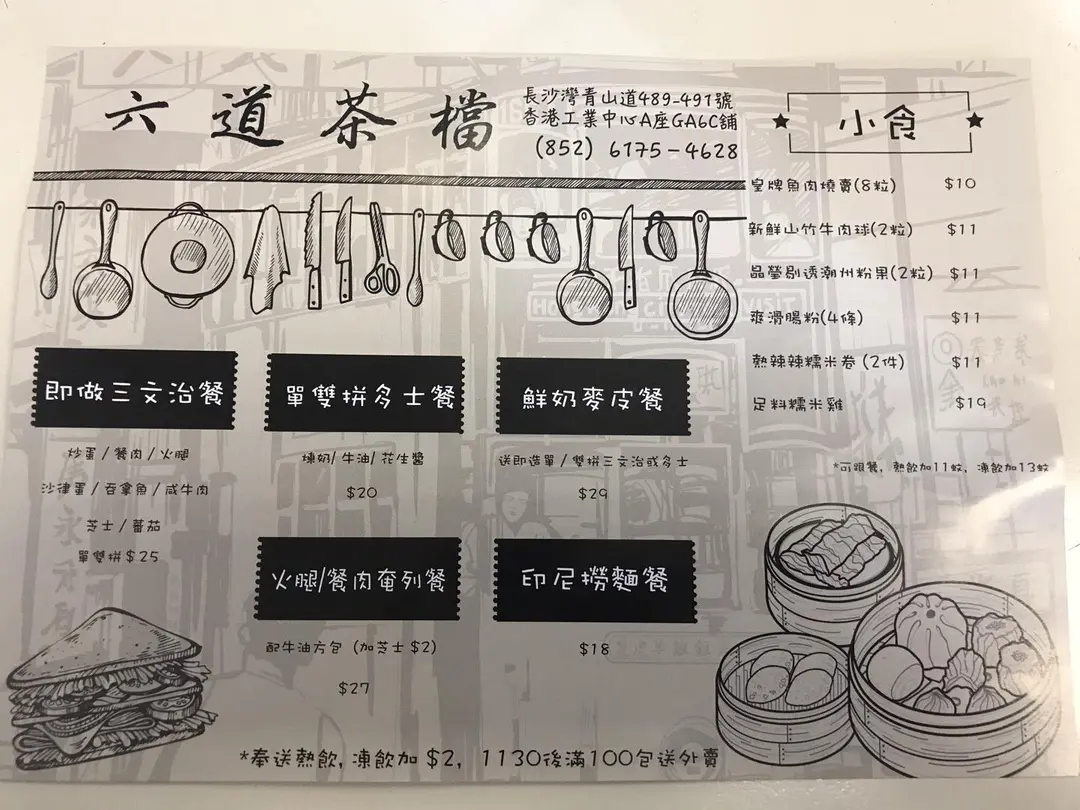 六道茶檔
長沙灣青山道489-491號
香港工業中心A座GA6C舖
(852) 6175-4628
小食
皇牌魚肉燒賣(8粒) $10
新鮮山竹牛肉球(2粒) $11
晶瑩剔透潮州粉果(2粒) $11
爽滑腸粉(4條) $11
熱辣辣糯米卷 (2件) $11
足料糯米雞 $19
*可跟餐, 熱飲加11蚊, 凍飲加13蚊
即做三文治餐
炒蛋/餐肉/火腿
沙律蛋/吞拿魚/咸牛肉
芝士/蕃茄
單雙拼$25
單雙拼多士餐
煉奶/牛油/花生醬
$20
鮮奶麥皮餐
送即造單/雙拼三文治或多士
$29
火腿/餐肉奄列餐
配牛油方包 (加芝士$2)
$27
印尼撈麵餐
$18
*奉送熱飲, 凍飲加 $2, 1130後滿100包送外賣